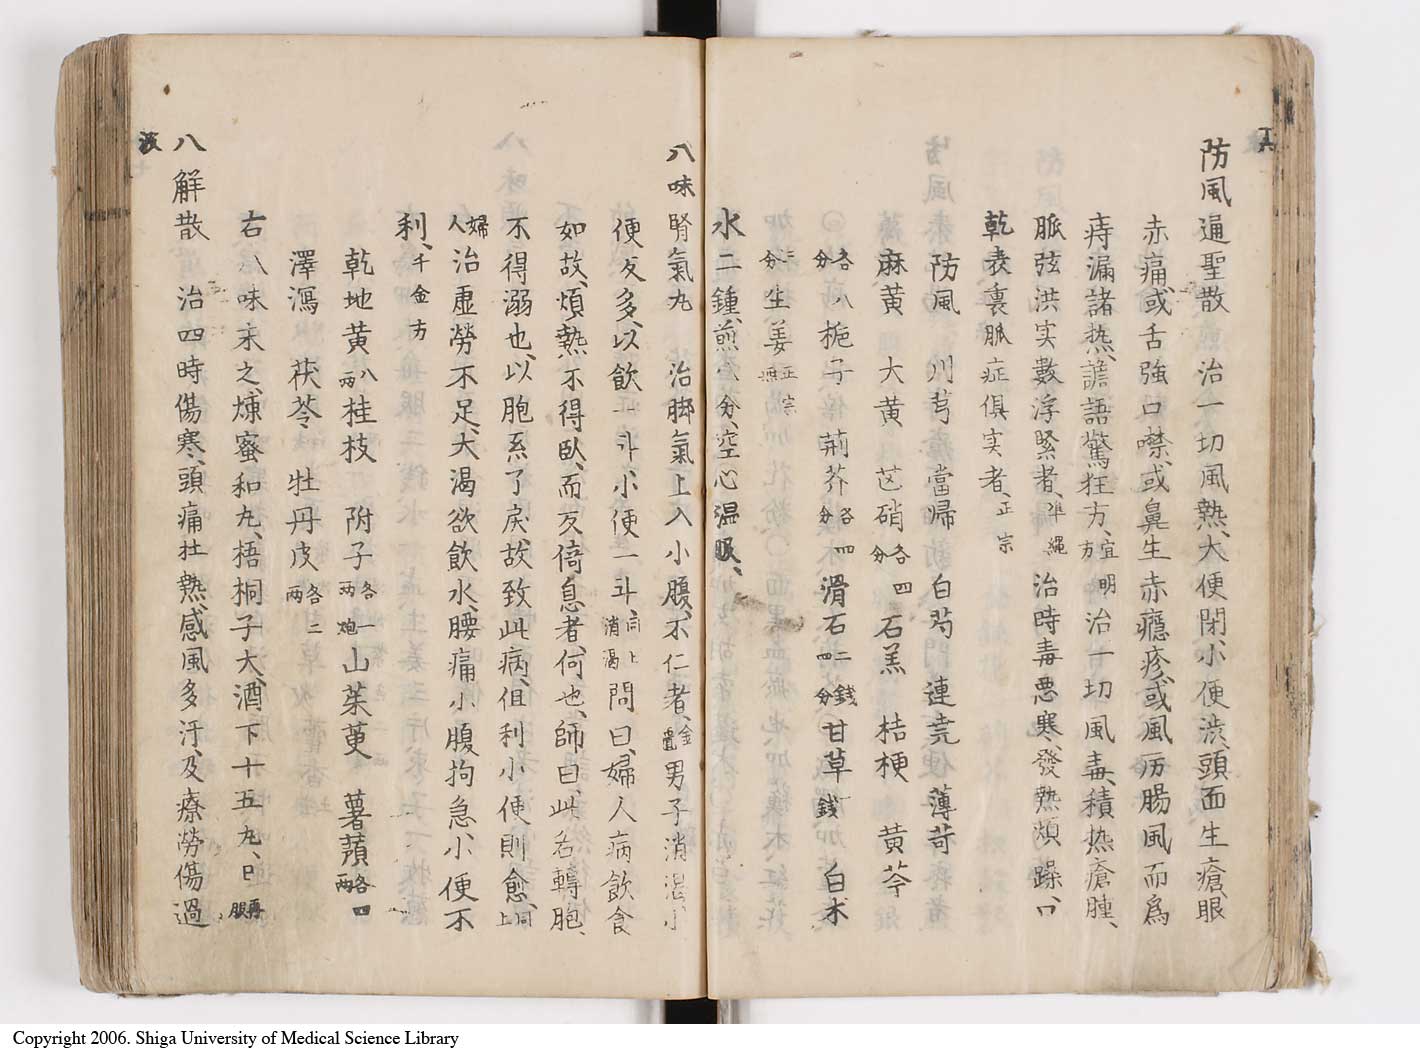 防風通聖散 治一切風熱、大便閉、小便渋、頭面生瘡、眼
赤痛、或舌強口噤、或鼻生赤癮疹、或風厉腸風而為
痔漏諸热、譫語驚狂方、宜明方 治一切風毒、積热瘡腫、
脈弦洪実數浮緊者、準繩 治時毒悪寒、發熱煩躁、口
乾表裏脈症俱実者、正宗
防風 川芎 當歸 白芍 連尭 薄苛
麻黄 大黄 芒硝各四分 石羔 桔梗 黄芩
各八分 梔子 荊芥各四分 滑石二銭四分 甘草銭 白朮
三分 生姜 正宗無
水二鍾、煎八分、空心温服、
八味腎氣丸 治脚氣上入小腹、不仁者、金匱 男子消渇小
便反多、以飲一斗小便一斗、同上消渇 問曰、婦人病飲食
如故、煩熱不得臥、而反倚息者、何也、師曰、此名轉胞、
不得溺也、以胞系了戻、故致此病、但利小便則愈、同上
婦人 治虚勞不足、大渴欲飲水、腰痛小腹拘急、小便不
利、千金方
乾地黄八両 桂枝 附子各一両炮 山茱萸 薯蕷各四両
澤瀉 茯苓 牡丹皮各三両
右八味末之、煉蜜和丸、梧桐子大、酒下十五丸、日再服
八解散 治四時傷寒、頭痛壮熱、感風多汗、及療勞傷過
波
Copyright 2006. Shiga University of Medical Science Library